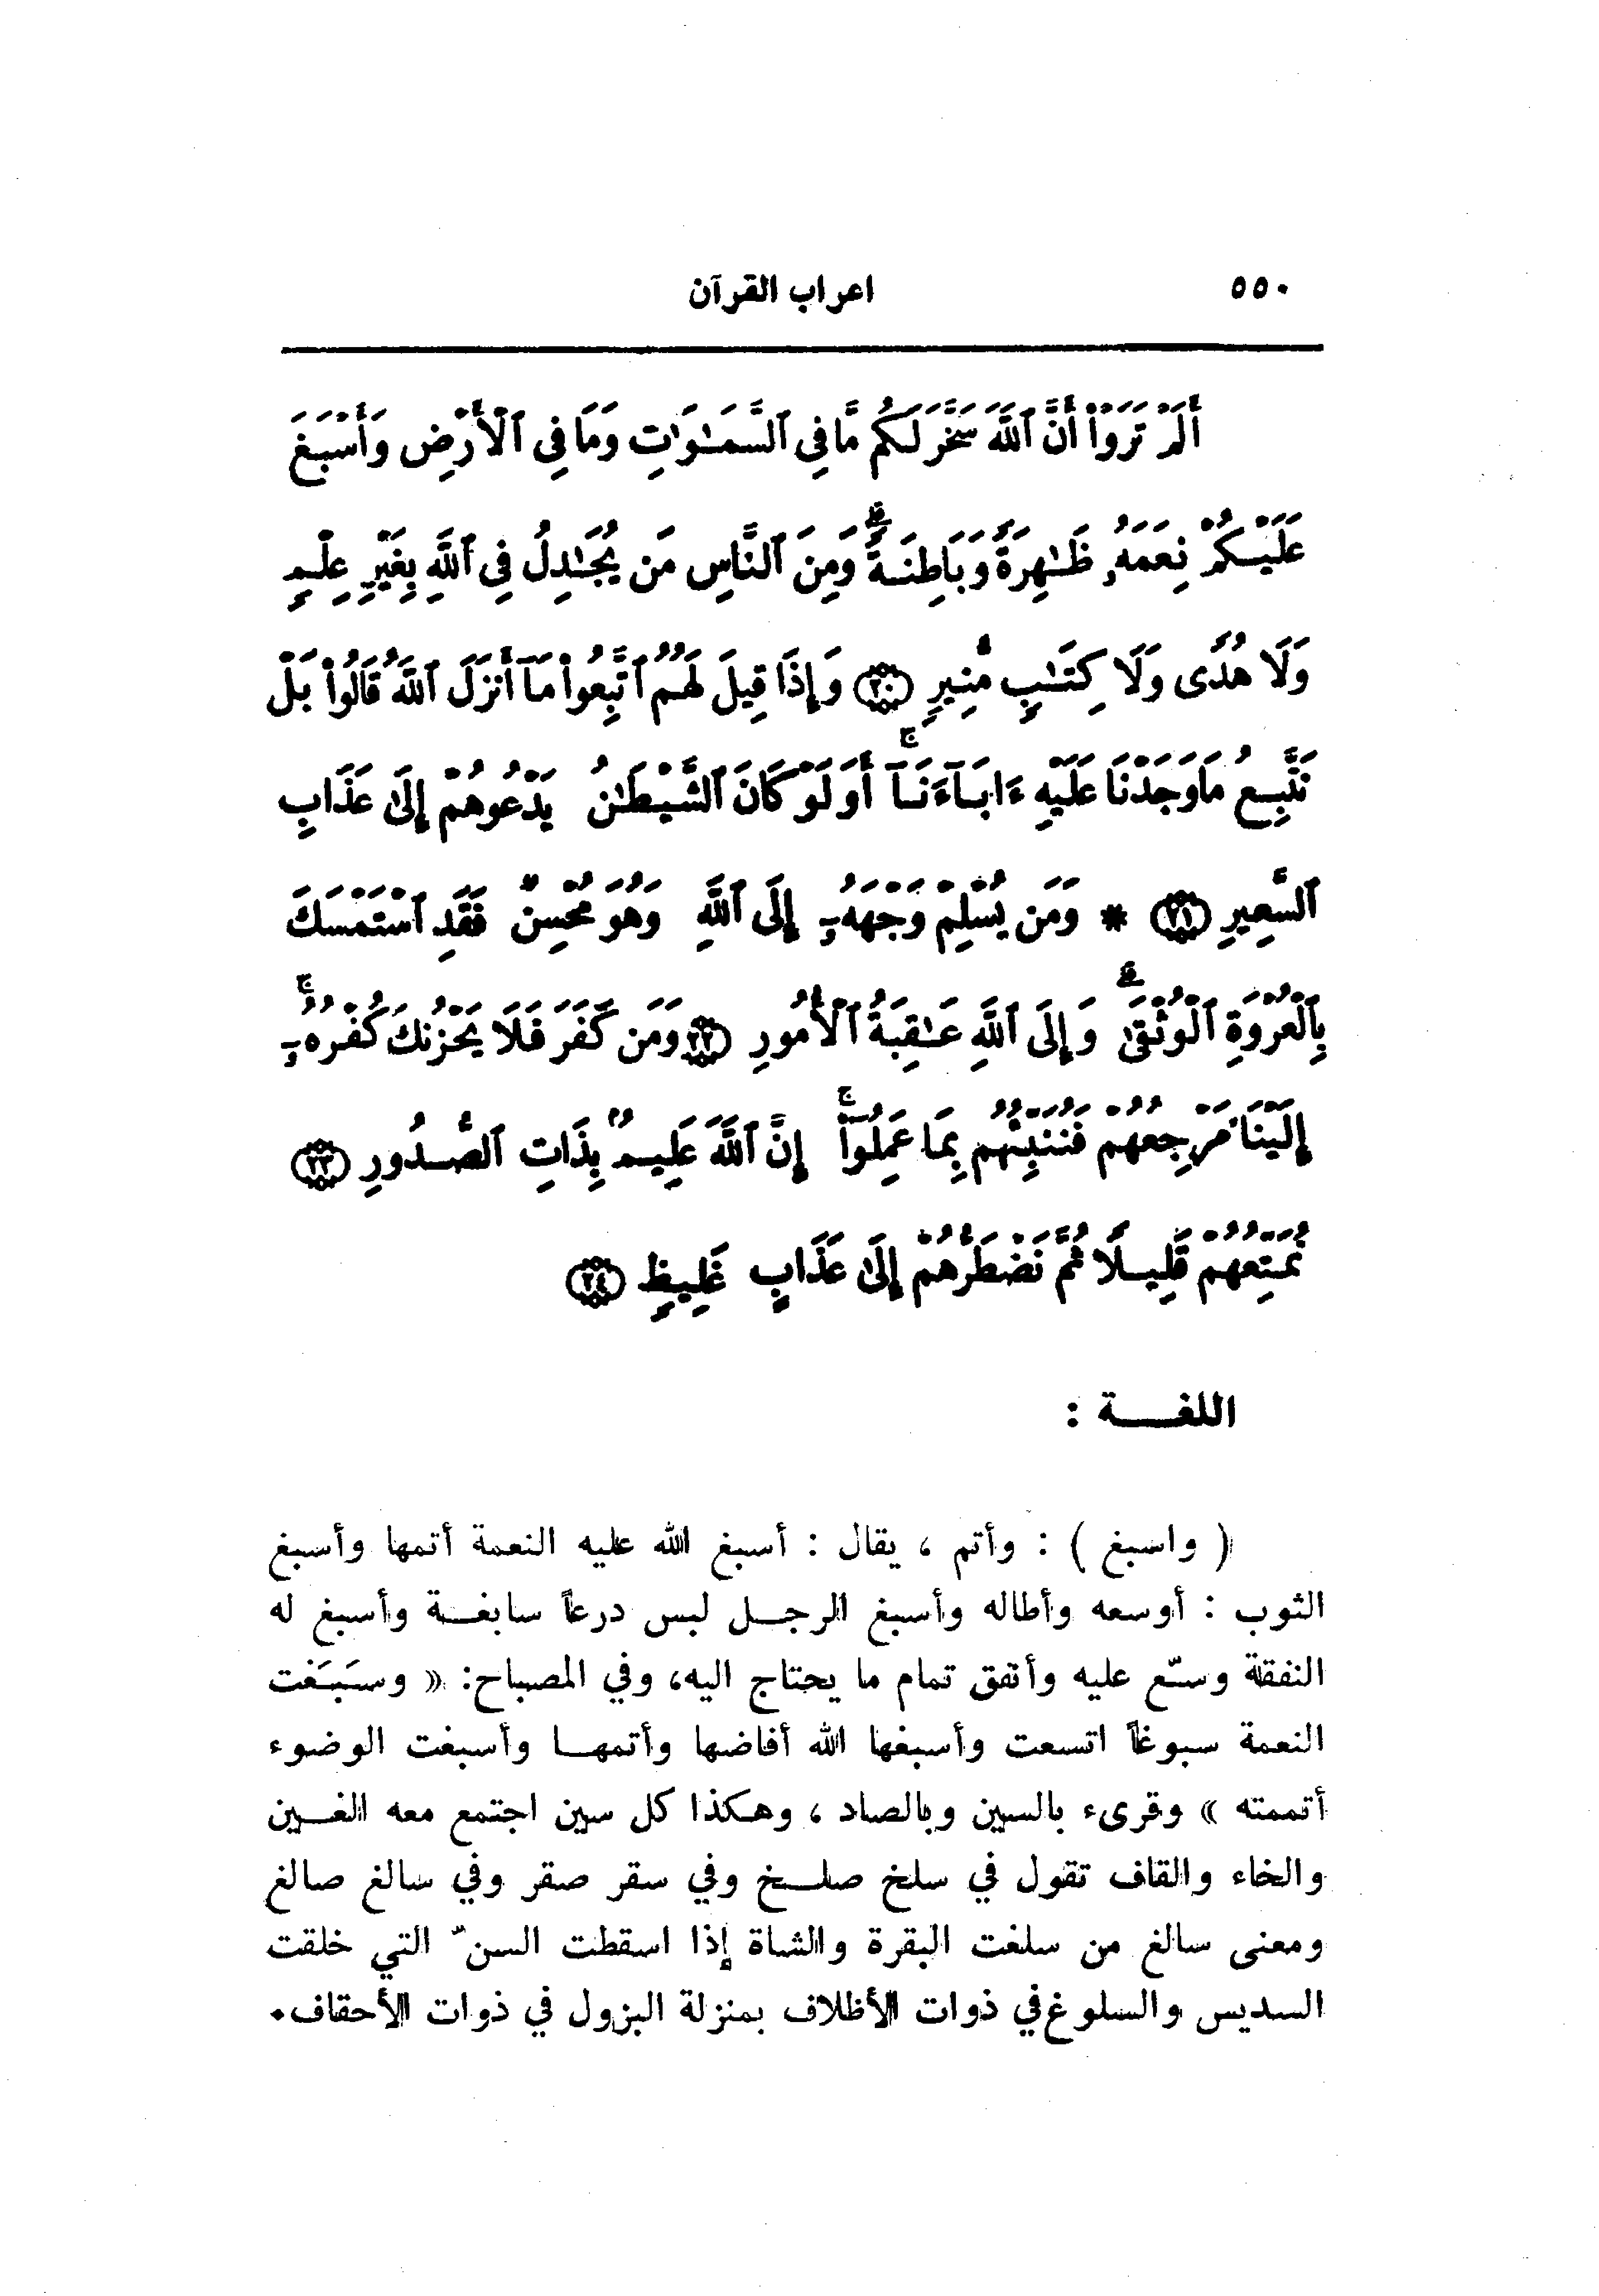 ٥٥٠ اعراب القرآن
أَلَمْ تَرَوْا۟ أَنَّ ٱللَّهَ سَخَّرَ لَكُم مَّا فِى ٱلسَّمَـٰوَٰتِ وَمَا فِى ٱلْأَرْضِ وَأَسْبَغَ
عَلَيْكُمْ نِعَمَهُۥ ظَـٰهِرَةً وَبَاطِنَةً ۗ وَمِنَ ٱلنَّاسِ مَن يُجَـٰدِلُ فِى ٱللَّهِ بِغَيْرِ عِلْمٍ
وَلَا هُدًى وَلَا كِتَـٰبٍ مُّنِيرٍ ﴿٢٠﴾ وَإِذَا قِيلَ لَهُمُ ٱتَّبِعُوا۟ مَآ أَنزَلَ ٱللَّهُ قَالُوا۟ بَلْ
نَتَّبِعُ مَا وَجَدْنَا عَلَيْهِ ءَابَآءَنَآ ۚ أَوَلَوْ كَانَ ٱلشَّيْطَـٰنُ يَدْعُوهُمْ إِلَىٰ عَذَابِ
ٱلسَّعِيرِ ﴿٢١﴾ * وَمَن يُسْلِمْ وَجْهَهُۥٓ إِلَى ٱللَّهِ وَهُوَ مُحْسِنٌ فَقَدِ ٱسْتَمْسَكَ
بِٱلْعُرْوَةِ ٱلْوُثْقَىٰ ۗ وَإِلَى ٱللَّهِ عَـٰقِبَةُ ٱلْأُمُورِ ﴿٢٢﴾ وَمَن كَفَرَ فَلَا يَحْزُنكَ كُفْرُهُۥٓ ۚ
إِلَيْنَا مَرْجِعُهُمْ فَنُنَبِّئُهُم بِمَا عَمِلُوٓا۟ ۚ إِنَّ ٱللَّهَ عَلِيمٌۢ بِذَاتِ ٱلصُّدُورِ ﴿٢٣﴾
نُمَتِّعُهُمْ قَلِيلًا ثُمَّ نَضْطَرُّهُمْ إِلَىٰ عَذَابٍ غَلِيظٍ ﴿٢٤﴾
اللغـــة :
( واسبغ ) : وأتم ، يقال : أسبغ الله عليه النعمة أتمها وأسبغ
الثوب : أوسعه وأطاله وأسبغ الرجـل لبس درعاً سابغـة وأسبغ له
النفقة وسّع عليه وأنفق تمام ما يحتاج اليه، وفي المصباح: « وسَبَغت
النعمة سبوغاً اتسعت وأسبغها الله أفاضها وأتمهـا وأسبغت الوضوء
أتممته » وقرىء بالسين وبالصاد ، وهكذا كل سين اجتمع معه الغـين
والخاء والقاف تقول في سلخ صلـخ وفي سقر صقر وفي سالغ صالغ
ومعنى سالغ من سلغت البقرة والشاة إذا اسقطت السنّ التي خلقت
السديس والسلوغ في ذوات الأظلاف بمنزلة البزول في ذوات الأحقاف.